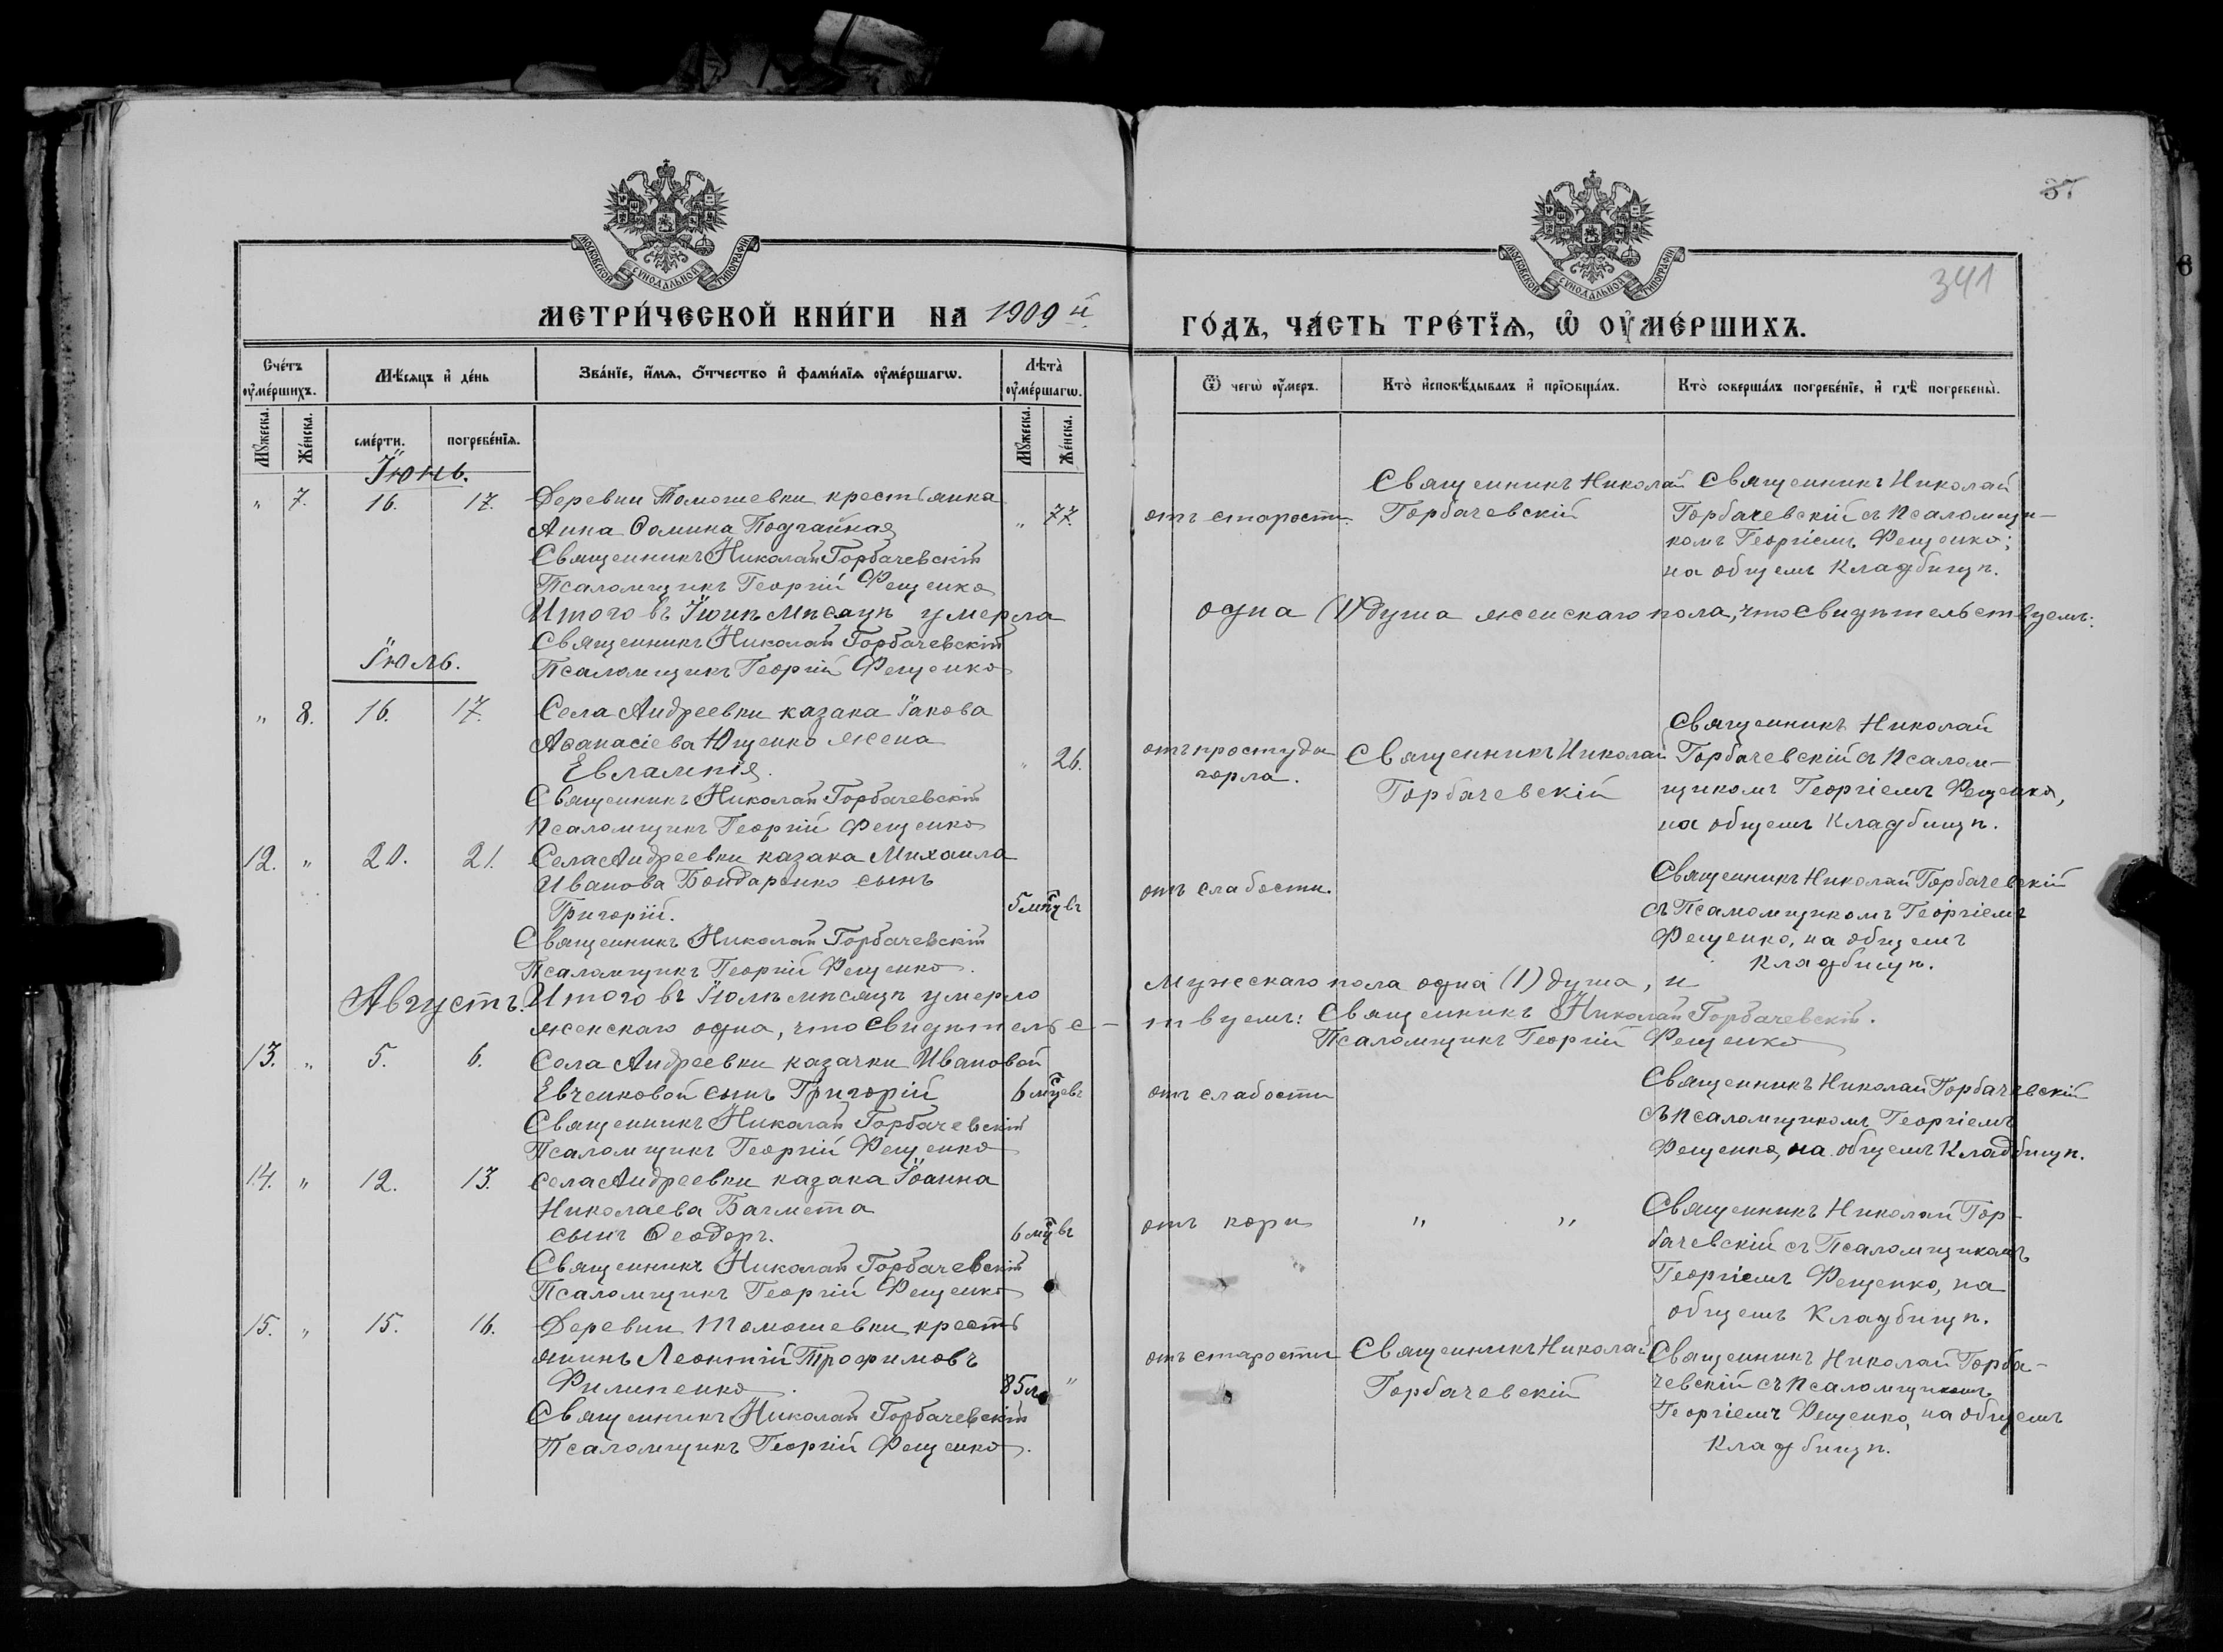 37
341
МОСКОВСКОЙ СУНОДАЛЬНОЙ ТИПОГРАФІИ
МОСКОВСКОЙ СУНОДАЛЬНОЙ ТИПОГРАФІИ
МЕТРИ́ЧЕСКОЙ КНИ́ГИ НА 1909 й
ГО́ДЪ, ЧА́СТЬ ТРЕ́ТЇѦ, Ѡ҆ ОУ҆МЕ́РШИХЪ.
Сче́тъ оу҆ме́ршихъ.
Мѣ́сяцъ и҆ де́нь
Зва́нїе, и҆́мѧ, ѻ҆́тчество и҆ фами́лїѧ оу҆ме́ршагѡ.
Лѣ́та оу҆ме́ршагѡ.
Ѿ чегѡ̀ оу҆́меръ.
Кто̀ и҆сповѣ́дывалъ и҆ прїѡбща́лъ.
Кто̀ соверша́лъ погребе́нїе, и҆ гдѣ̀ погребены̀.
Мꙋ́жеска. Же́нска. сме́рти. погребе́нїѧ. Мꙋ́жеска. Же́нска.
Іюнь.
„ 7. 16. 17. Деревни Томашевки крестьянка
Анна Ѳомина Подгайная „ 77.
Священникъ Николай Горбачевскій
Псаломщикъ Георгій Фещенко
отъ старости.
Священникъ Николай
Горбачевскій
Священникъ Николай
Горбачевскій съ псаломщи-
комъ Георгіемъ Фещенко;
на общемъ кладбищѣ.
Итого въ Іюнѣ мѣсяцѣ умерла одна (1) душа женскаго пола, что свидѣтельствуемъ:
Священникъ Николай Горбачевскій
Псаломщикъ Георгій Фещенко
Іюль.
„ 8. 16. 17. Села Андреевки казака Іакова
Аѳанасіева Ющенко жена
Евлампія. „ 26.
Священникъ Николай Горбачевскій
Псаломщикъ Георгій Фещенко
отъ простуды
горла.
Священникъ Николай
Горбачевскій
Священникъ Николай
Горбачевскій съ псалом-
щикомъ Георгіемъ Фещенко,
на общемъ кладбищѣ.
12. „ 20. 21. Села Андреевки казака Михаила
Иванова Бондаренко сынъ
Григорій. 5 мѣсцвъ
Священникъ Николай Горбачевскій
Псаломщикъ Георгій Фещенко.
отъ слабости.
Священникъ Николай Горбачевскій
съ Псаломщикомъ Георгіемъ
Фещенко, на общемъ
кладбищѣ.
Итого въ Іюлѣ мѣсяцѣ умерло мужескаго пола одна (1) душа, и
женскаго одна, что свидѣтельс-твуемъ: Священникъ Николай Горбачевскій.
Псаломщикъ Георгій Фещенко
Августъ.
13. „ 5. 6. Села Андреевки казачки Ивановой
Евченковой сынъ Григорій 6 мсцевъ
Священникъ Николай Горбачевскій
Псаломщикъ Георгій Фещенко
отъ слабости
Священникъ Николай Горбачевскій
съ псаломщикомъ Георгіемъ
Фещенко, на общемъ кладбищѣ.
14. „ 12. 13. Села Андреевки казака Іоанна
Николаева Бахмета
сынъ Ѳеодоръ. 6 мсцвъ
Священникъ Николай Горбачевскій
Псаломщикъ Георгій Фещенко
отъ кори „ „
Священникъ Николай Гор-
бачевскій съ Псаломщикомъ
Георгіемъ Фещенко, на
общемъ кладбищѣ.
15. „ 15. 16. Деревни Томашевки кресть
янинъ Леонтій Трофимовъ
Филипенко. 85 л. „
Священникъ Николай Горбачевскій
Псаломщикъ Георгій Фещенко.
отъ старости
Священникъ Николай
Горбачевскій
Священникъ Николай Горба-
чевскій съ псаломщикомъ
Георгіемъ Фещенко, на общемъ
кладбищѣ.